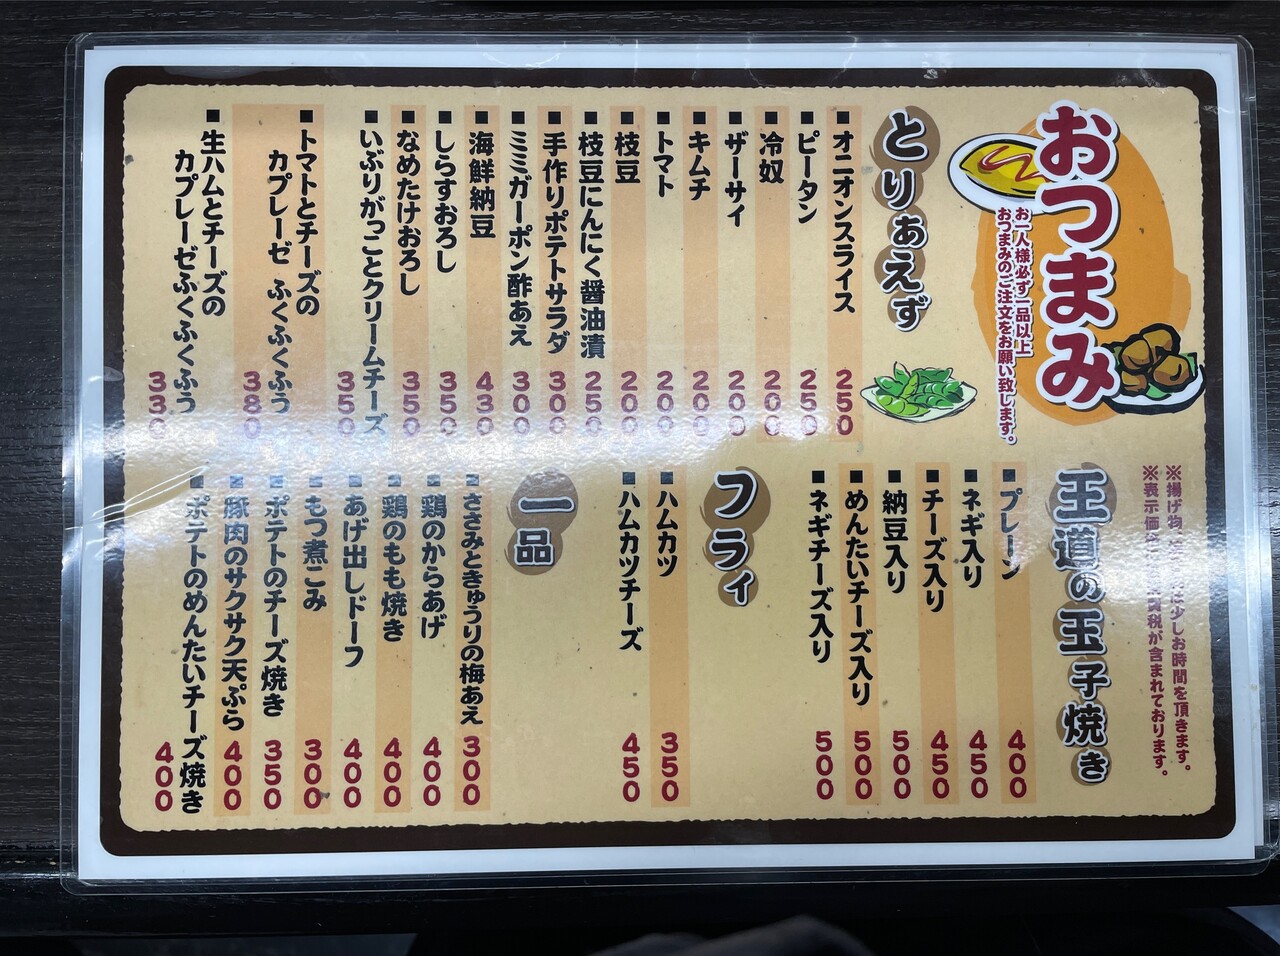 おつまみ
お一人様必ず一品以上
おつまみのご注文をお願い致します。
とりあえず
■オニオンスライス 250
■ピータン 250
■冷奴 200
■ザーサイ 200
■キムチ 200
■トマト 200
■枝豆 200
■枝豆にんにく醤油漬 250
■手作りポテトサラダ 300
■ミミガーポン酢あえ 300
■海鮮納豆 430
■しらすおろし 350
■なめたけおろし 350
■いぶりがっことクリームチーズ 350
■トマトとチーズの
カプレーゼ ふくふくふう 380
■生ハムとチーズの
カプレーゼふくふくふう 330
※揚げ物、 は少しお時間を頂きます。
※表示価格 費税が含まれております。
王道の玉子焼き
■プレーン 400
■ネギ入り 450
■チーズ入り 450
■納豆入り 500
■めんたいチーズ入り 500
■ネギチーズ入り 500
フライ
■ハムカツ 350
■ハムカツチーズ 450
一品
■ささみときゅうりの梅あえ 300
■鶏のからあげ 400
■鶏のもも焼き 400
■あげ出しドーフ 400
■もつ煮こみ 300
■ポテトのチーズ焼き 350
■豚肉のサクサク天ぷら 400
■ポテトのめんたいチーズ焼き 400